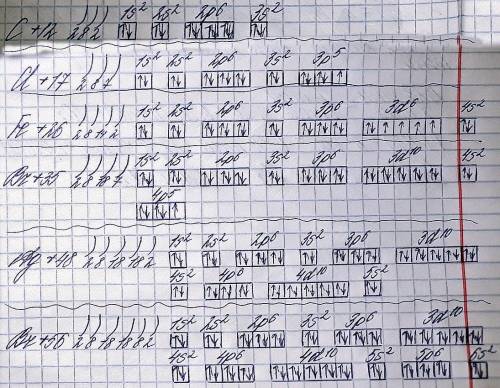 C +12 2 8 2 1s² 2s² 2p⁶ 3s²
Cl +17 2 8 7 1s² 2s² 2p⁶ 3s² 3p⁵
Fe +26 2 8 14 2 1s² 2s² 2p⁶ 3s² 3p⁶ 3d⁶ 4s²
Br +35 2 8 18 7 1s² 2s² 2p⁶ 3s² 3p⁶ 3d¹⁰ 4s²
4p⁵
+48 2 8 18 18 2 1s² 2s² 2p⁶ 3s² 3p⁶ 3d¹⁰
4s² 4p⁶ 4d¹⁰ 5s²
+56 2 8 18 18 8 2 1s² 2s² 2p⁶ 3s² 3p⁶ 3d¹⁰
4s² 4p⁶ 4d¹⁰ 5s² 5p⁶ 6s²